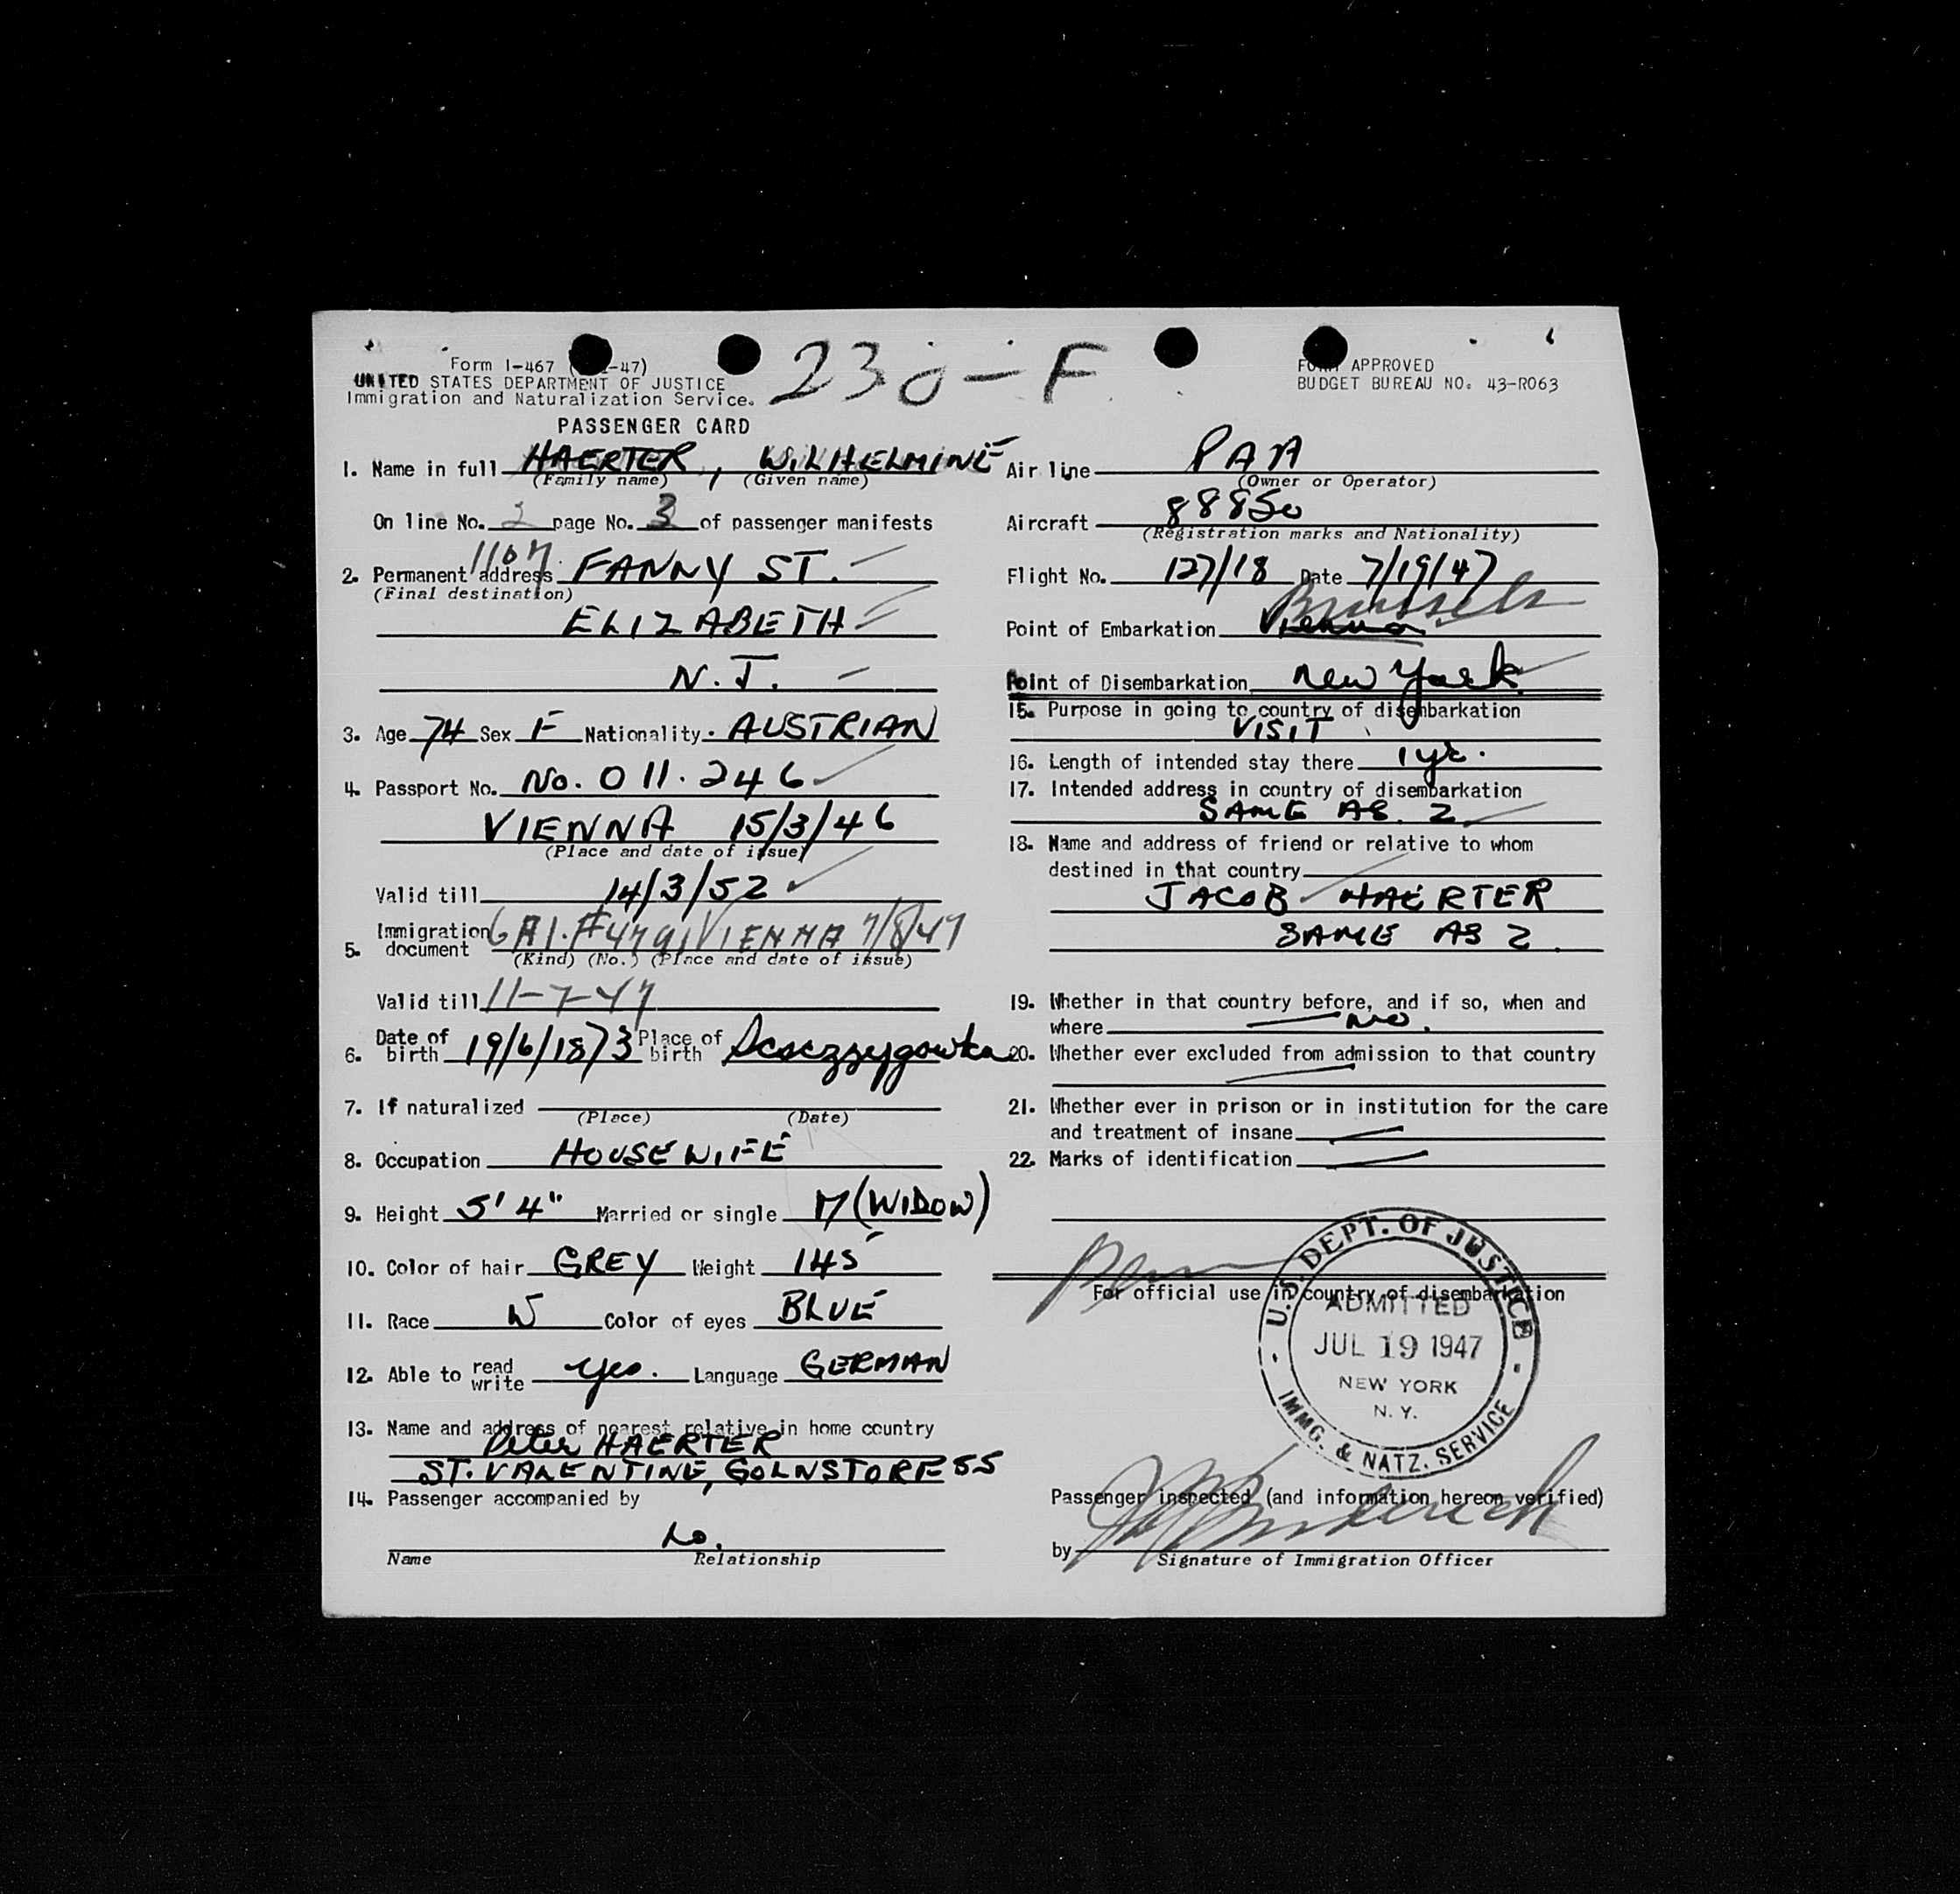 230-F
Form I-467 ( -47)
UNITED STATES DEPARTMENT OF JUSTICE
Immigration and Naturalization Service.
FORM APPROVED
BUDGET BUREAU NO. 43-R063
PASSENGER CARD
1. Name in full HAERTER, WILHELMINE
(Family name) (Given name)
On line No. 2 page No. 3 of passenger manifests
2. Permanent address 1107 FANNY ST.
(Final destination)
ELIZABETH
N.J.
3. Age 74 Sex F Nationality. AUSTRIAN
4. Passport No. No. 011.246
VIENNA 15/3/46
(Place and date of issue)
Valid till 14/3/52
5. Immigration document VIENNA 7/8/47
(Kind) (No.) (Place and date of issue)
Valid till 11-7-47
6. Date of birth 19/6/1873 Place of birth
7. If naturalized
(Place) (Date)
8. Occupation HOUSEWIFE
9. Height 5' 4" Married or single M (WIDOW)
10. Color of hair GREY Weight 145
11. Race W Color of eyes BLUE
12. Able to read write yes. Language GERMAN
13. Name and address of nearest relative in home country
Peter HAERTER
ST. VALENTINE, GOLNSTORF 55
14. Passenger accompanied by
No.
Name Relationship
Air line PAA
(Owner or Operator)
Aircraft 88850
(Registration marks and Nationality)
Flight No. 127/18 Date 7/19/47
Brussels
Point of Embarkation Vienna
Point of Disembarkation New York
15. Purpose in going to country of disembarkation
VISIT
16. Length of intended stay there 1 yr.
17. Intended address in country of disembarkation
SAME AS 2
18. Name and address of friend or relative to whom
destined in that country
JACOB HAERTER
SAME AS 2.
19. Whether in that country before, and if so, when and
where No.
20. Whether ever excluded from admission to that country
21. Whether ever in prison or in institution for the care
and treatment of insane
22. Marks of identification
For official use in country of disembarkation
U.S. DEPT. OF JUSTICE
ADMITTED
JUL 19 1947
NEW YORK
N. Y.
IMMG. & NATZ. SERVICE
Passenger inspected (and information hereon verified)
by
Signature of Immigration Officer